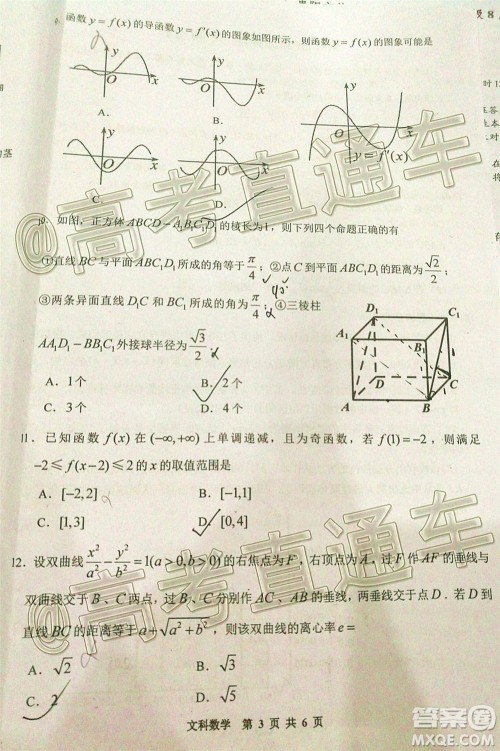 函数y=f(x)的导函数y=f'(x)的图象如图所示，则函数y=f(x)的图象可能是
y
O
x
A.
y
O
x
B.
y
O
x
y=f'(x)
y
O
x
C.
y
O
x
D.
10. 如图，正方体ABCD-A₁B₁C₁D₁的棱长为1，则下列四个命题正确的有
①直线BC与平面ABC₁D₁所成的角等于π/4；②点C到平面ABC₁D₁的距离为√2/2；
③两条异面直线D₁C和BC₁所成的角为π/4；④三棱柱
AA₁D₁-BB₁C₁外接球半径为√3/2.
A. 1个
B. 2个
C. 3个
D. 4个
D₁
C₁
A₁
B₁
D
C
A
B
11. 已知函数f(x)在(-∞,+∞)上单调递减，且为奇函数，若f(1)=-2，则满足
-2≤f(x-2)≤2的x的取值范围是
A. [-2,2]
B. [-1,1]
C. [1,3]
D. [0,4]
12. 设双曲线x²/a²-y²/b²=1(a>0,b>0)的右焦点为F，右顶点为A，过F作AF的垂线与
双曲线交于B、C两点，过B、C分别作AC、AB的垂线，两垂线交于点D. 若D到
直线BC的距离等于a+√(a²+b²)，则该双曲线的离心率e=
A. √2
B. √3
C. 2
D. √5
文科数学 第3页共6页
@高考直通车
@高考直通车
答案圈
MXQE.COM